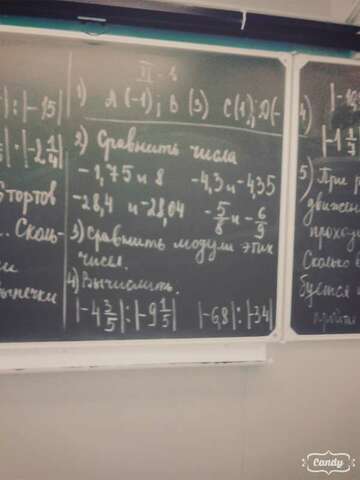 |-15|
|-2 1/4|
тортов
Сколь-
II-в
1) А(-1); В(3) С(1); D(-
2) Сравнить числа
-1,75 и 8 -4,3 и -4,35
-28,4 и -28,04 -5/8 и -6/9
3) Сравнить модули этих
чисел.
4) Вычислить.
|-4 3/5| : |-9 1/5| |-6,8| : |-34|
4)
5) При
движен
проход
Сколько
буется
Candy